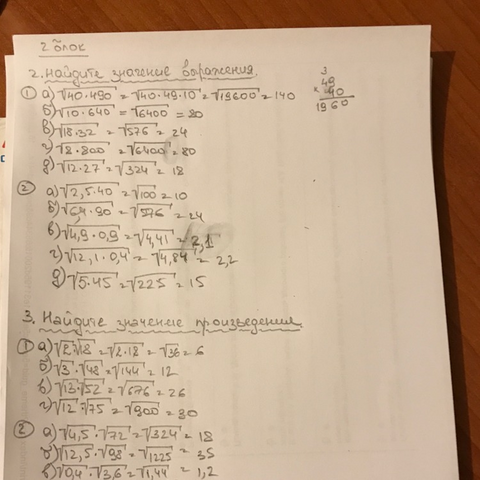 2 блок
2. Найдите значение выражения.
① а) √40·490 = √40·49·10 = √19600 = 140
б) √10·640 = √6400 = 80
в) √18·32 = √576 = 24
г) √8·800 = √6400 = 80
д) √12·27 = √324 = 18
3
49
× 40
1960
② а) √2,5·40 = √100 = 10
б) √6,4·90 = √576 = 24
в) √4,9·0,9 = √4,41 = 2,1
г) √12,1·0,4 = √4,84 = 2,2
д) √5·45 = √225 = 15
3. Найдите значение произведения.
① а) √2·√18 = √2·18 = √36 = 6
б) √3·√48 = √144 = 12
в) √13·√52 = √676 = 26
г) √12·√75 = √900 = 30
② а) √4,5·√72 = √324 = 18
б) √12,5·√98 = √1225 = 35
в) √0,4·√3,6 = √1,44 = 1,2